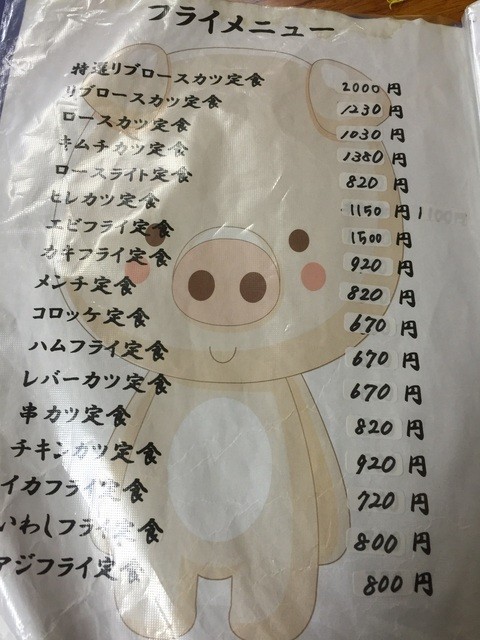 フライメニュー
特選リブロースカツ定食 2000円
リブロースカツ定食 1230円
ロースカツ定食 1030円
キムチカツ定食 1380円
ロースライト定食 820円
ヒレカツ定食 1150円
エビフライ定食 1500円
カキフライ定食 920円
メンチ定食 820円
コロッケ定食 670円
ハムフライ定食 670円
レバーカツ定食 670円
串カツ定食 820円
チキンカツ定食 920円
イカフライ定食 720円
いわしフライ定食 800円
アジフライ定食 800円